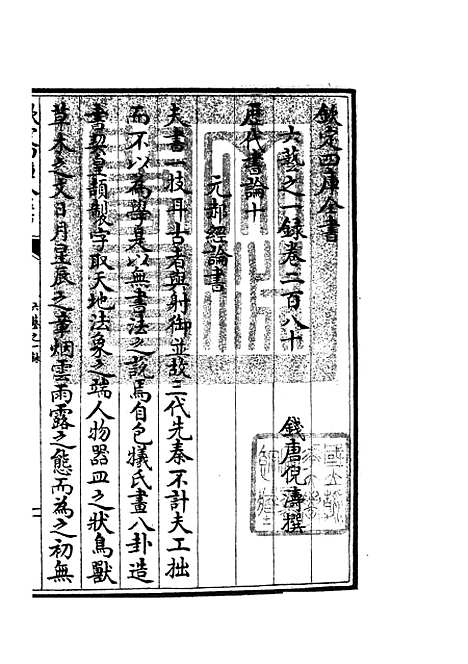 欽定四庫全書
六藝之一錄卷二百八十
錢唐倪濤撰
歷代書論十
元郝經論書
夫書一技耳古者與射御並故三代先秦不計夫工拙
而不以為學是以無書法之說焉自包犧氏畫八卦造
書契皇頡製字取天地法象之端人物器皿之狀鳥獸
草木之文日月星辰之章烟雲雨露之態而為之初無
六藝之一錄
一